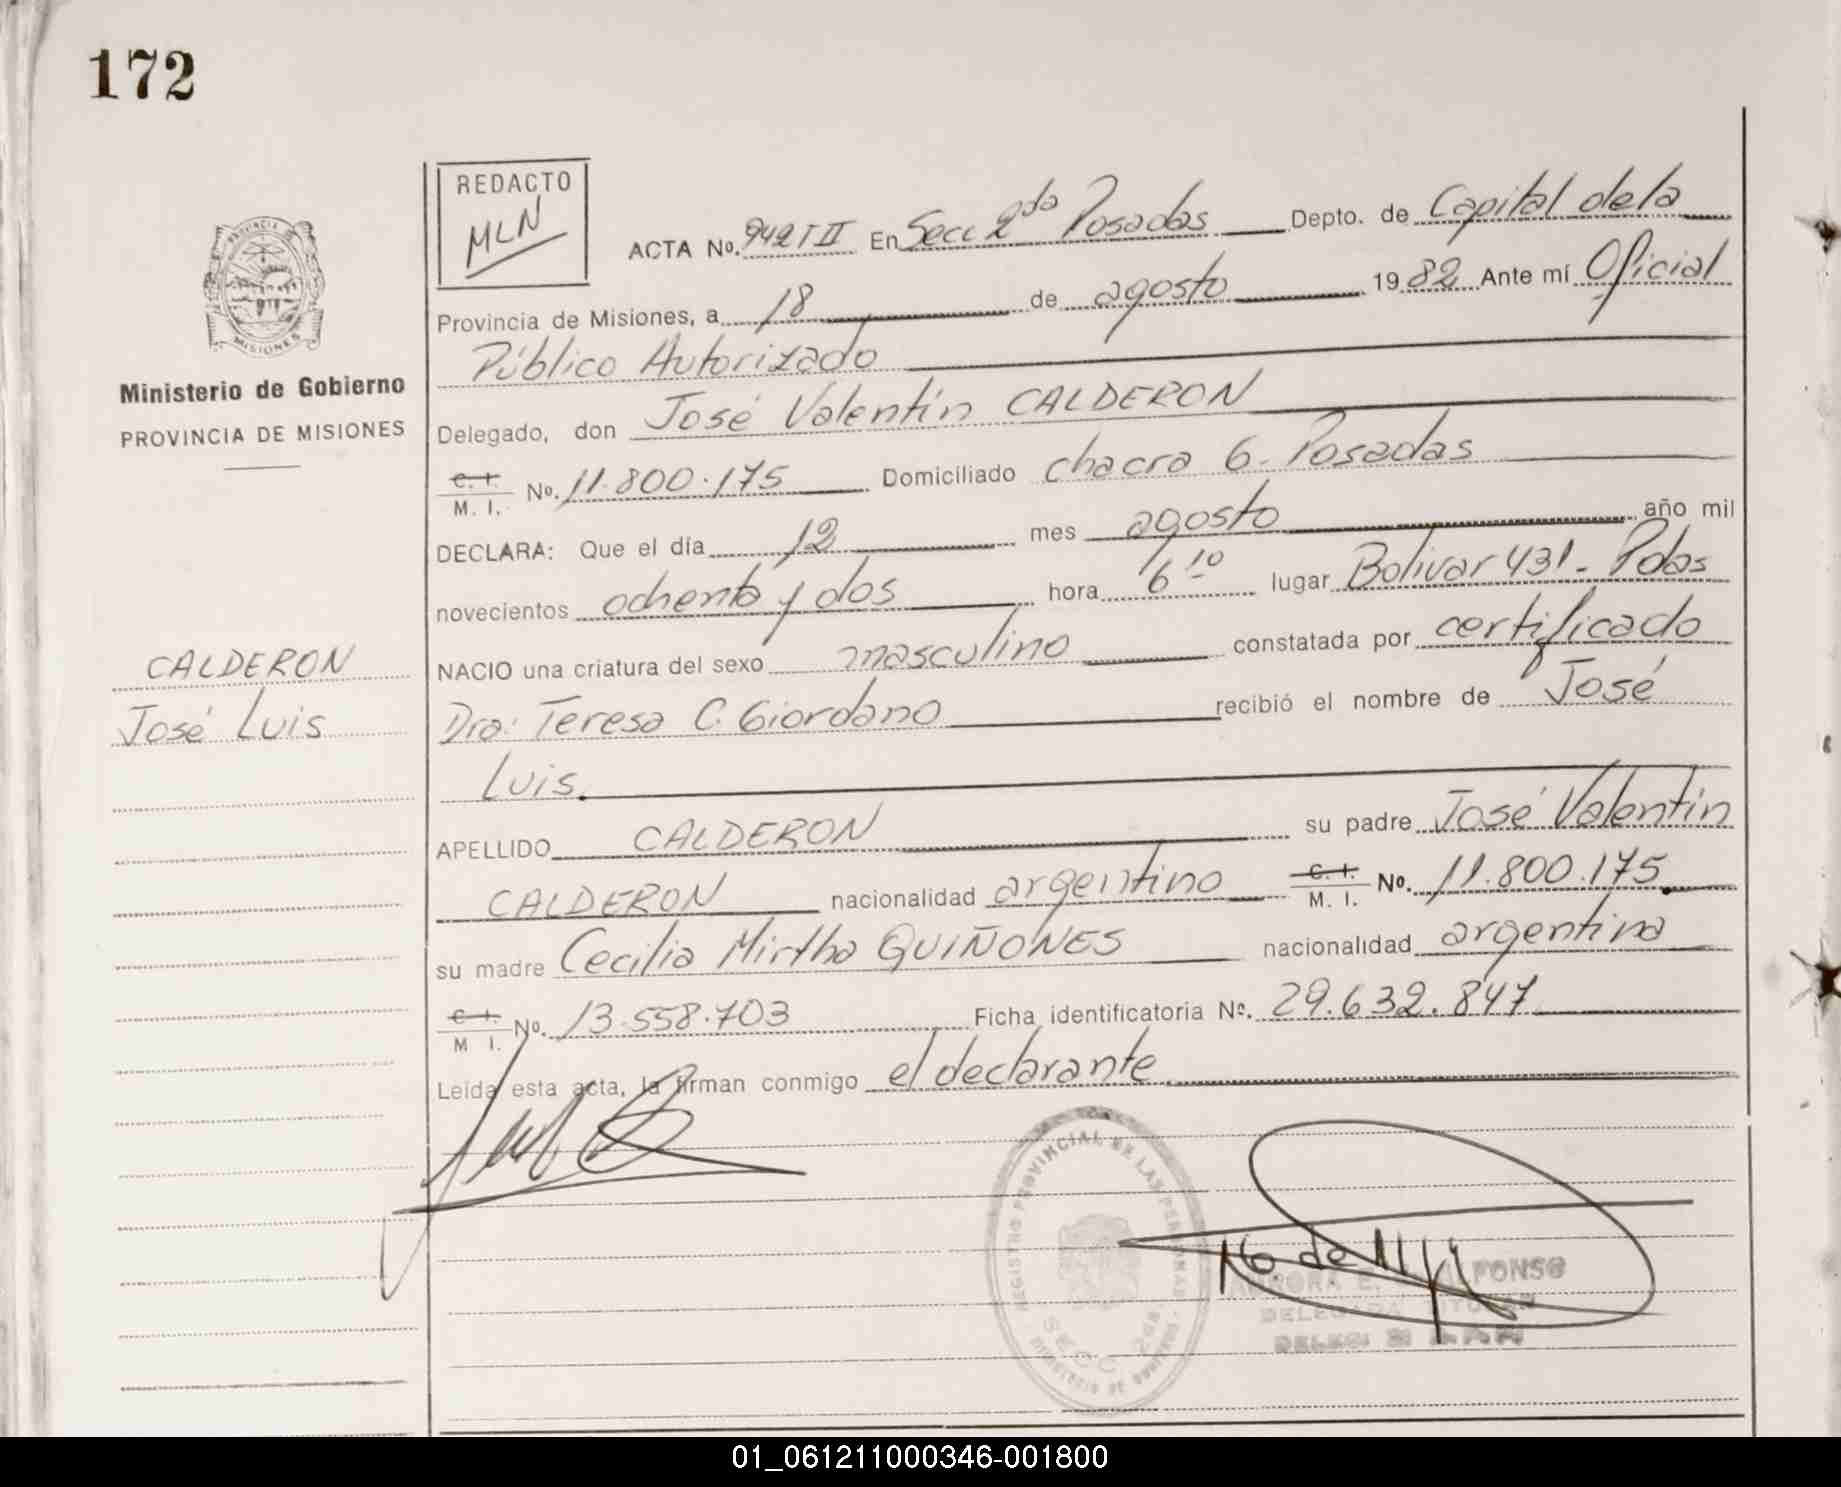 172
REDACTO
MLN
ACTA No. 942 T II En Secc 2da Posadas Depto. de Capital de la
Provincia de Misiones, a 18 de agosto 1982 Ante mí Oficial
Público Autorizado
Delegado, don José Valentin CALDERON
C. I. M. I. No. 11.800.175 Domiciliado chacra 6. Posadas
DECLARA: Que el día 12 mes agosto año mil
novecientos ochenta y dos hora 6 10 lugar Bolivar 431 - Pdas
NACIO una criatura del sexo masculino constatada por certificado
Dra: Teresa C. Giordano recibió el nombre de José
Luis.
APELLIDO CALDERON su padre José Valentin
CALDERON nacionalidad argentino C. I. M. I. No. 11.800.175.
su madre Cecilia Mirtha QUIÑONES nacionalidad argentina
C. I. M I. No. 13.558.703 Ficha identificatoria No. 29.632.847
Leída esta acta, la firman conmigo el declarante
PROVINCIA DE
MISIONES
Ministerio de Gobierno
PROVINCIA DE MISIONES
CALDERON
José Luis
REGISTRO PROVINCIAL DE LAS PERSONAS
SECC. 2da.
MINISTERIO DE GOBIERNO
AURORA E. ALFONSO
DELEGADA TITULAR
01_061211000346-001800